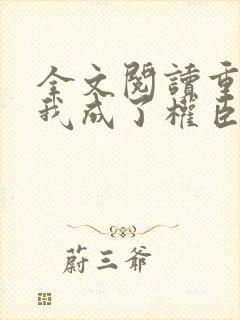 全文閱讀重
我成了權臣
蔚三爺